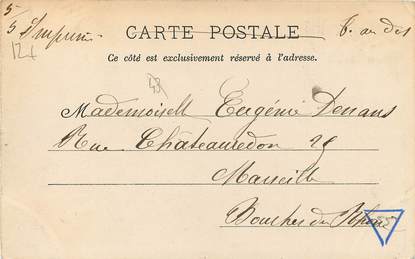 CARTE POSTALE
Ce côté est exclusivement réservé à l'adresse.
Mademoisell Eugénie Denans
Rue Châteauredon 29
Marseille
Bouches du Rhône